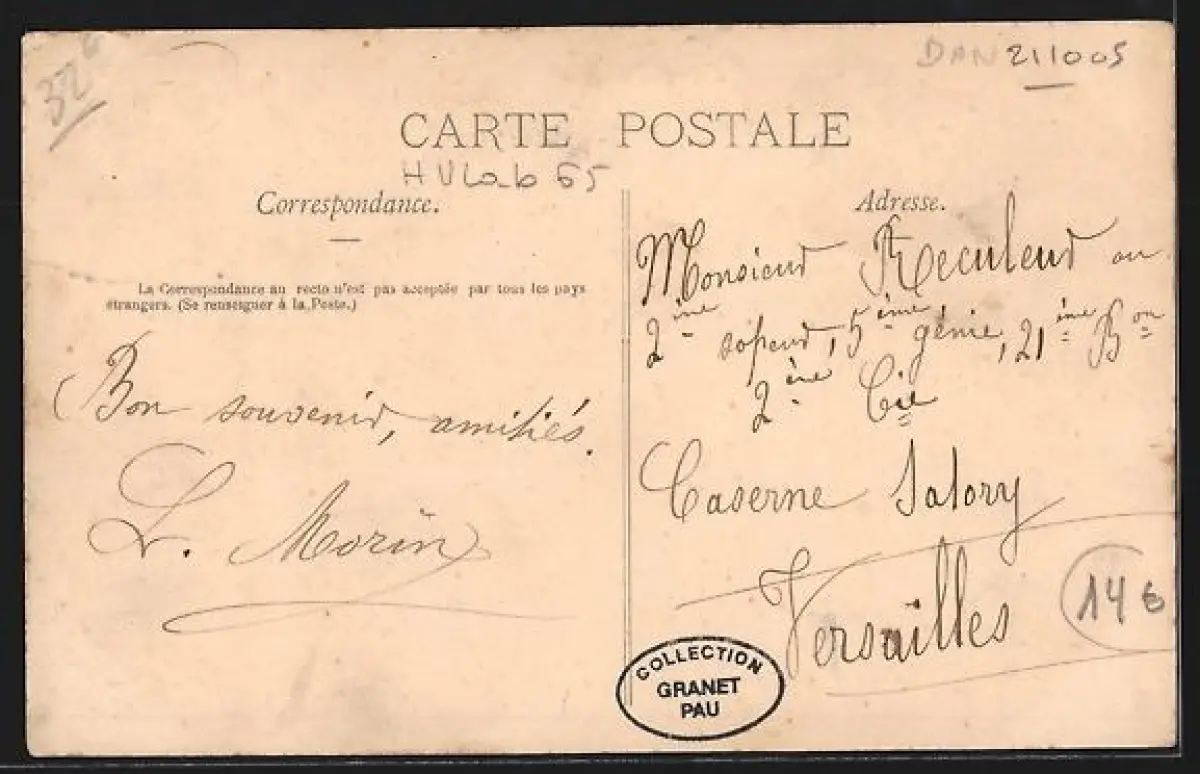 32€
DAN 211005
CARTE POSTALE
Correspondance.
La Correspondance au recto n'est pas acceptée par tous les pays
étrangers. (Se renseigner à la Poste.)
Bon souvenir, amitiés.
L. Morin
Adresse.
Monsieur Reculeur au
2ème sapeur, 5ème génie, 21ème Bon
2ème Cie
Caserne Satory
Versailles
14€
COLLECTION
GRANET
PAU